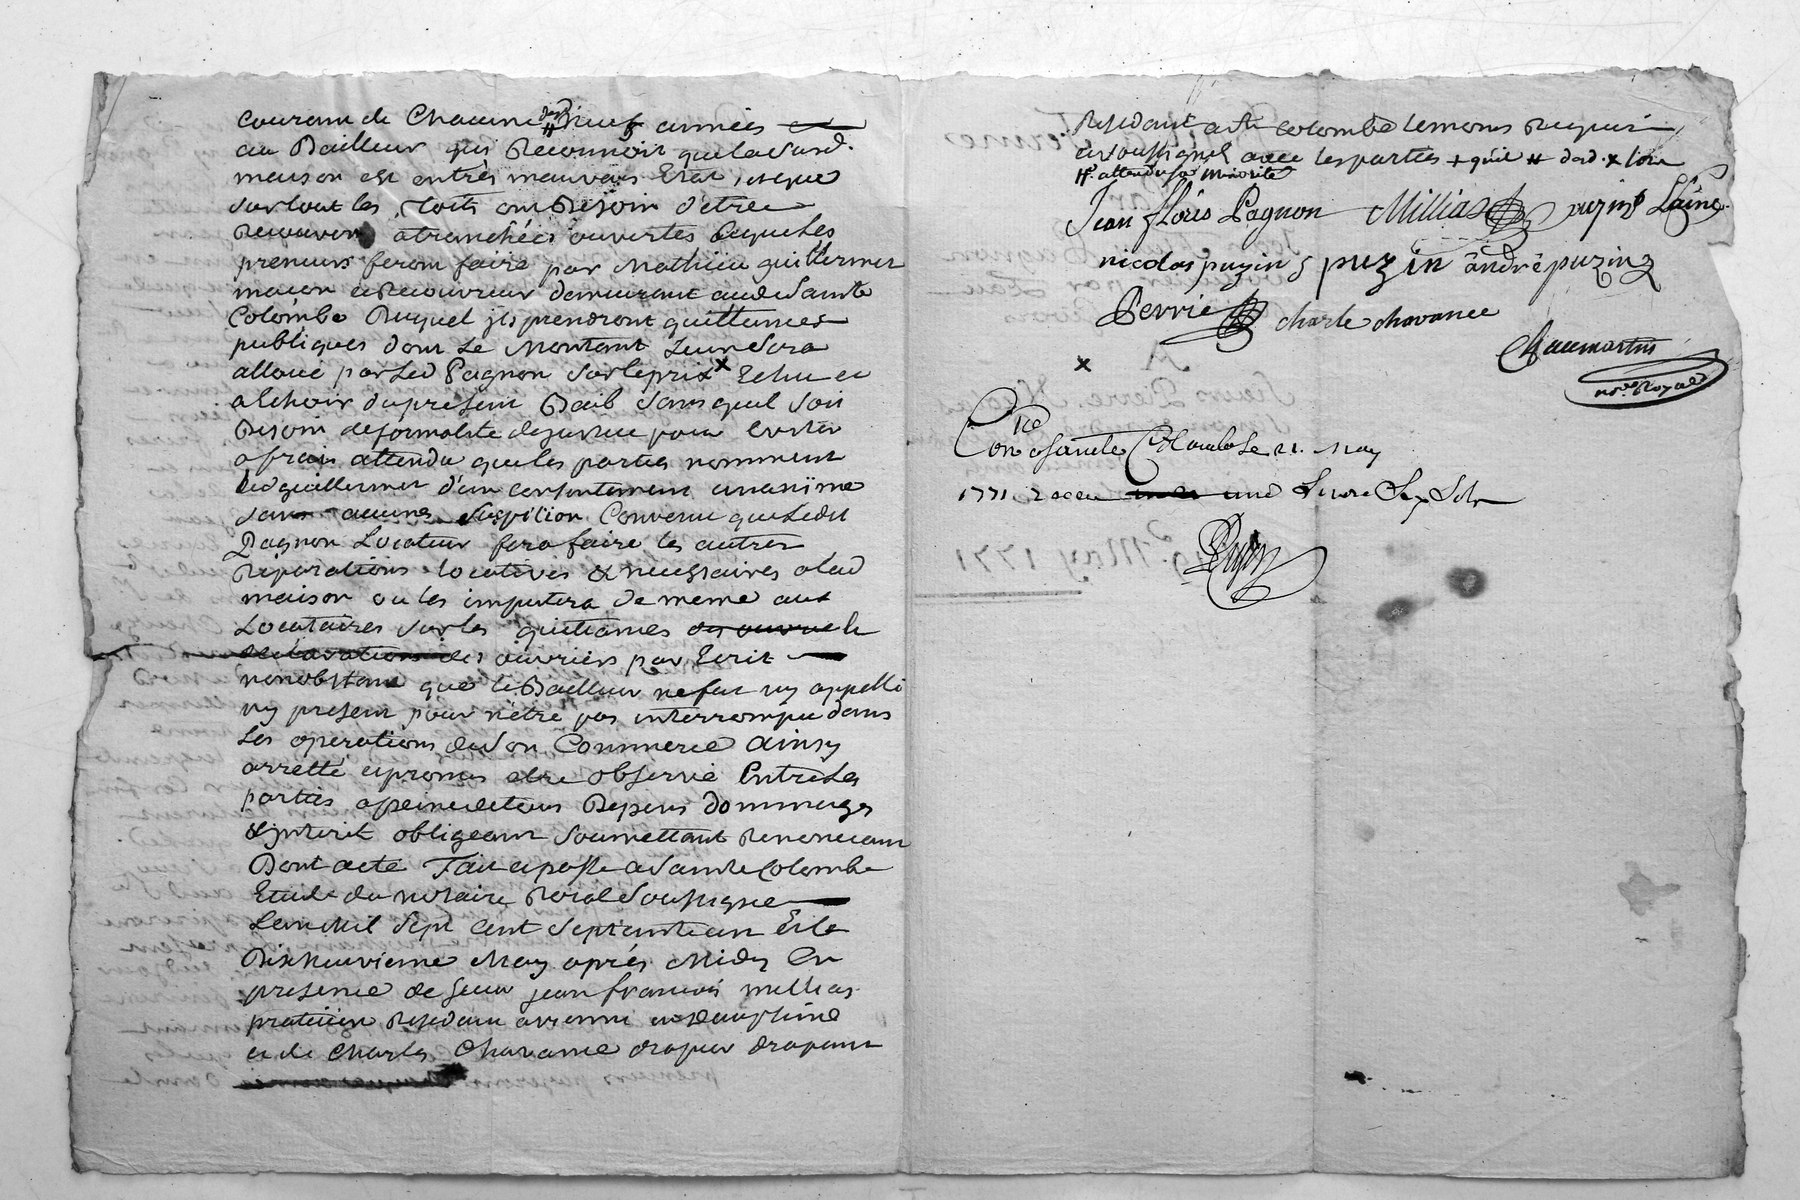 courant de Chacune des Neuf années
au Bailleur qui Reconnoit que la susd.
maison est entrès mauvais Etat, et que
surtout les Toits ont Besoin d'etre
Recouverts a tranchées ouvertes ce que les
preneurs feront faire par Mathieu guillermet
maçon et Recouvreur demeurant aud. Sainte
Colombe Duquel jls prendront quittances
publiques dont Le Montant Leur Sera
alloué par Led Pagnon sur le prix x Echu et
a Echoir du present Bail sans quil soit
Besoin de formalité de justice pour Eviter
a frais attendu que les parties nomment
led guillermet d'un consentement unanime
sans aucune suspition Convenu que Ledit
Pagnon Locateur fera faire les autres
Réparations locatives & necessaires a lad
maison ou les imputera de meme aux
Locataires sur les quittances
declarations des ouvriers par Ecrit
nonobstant que le Bailleur ne fut ny appellé
ny present pour n'être pas interrompu dans
Les operations de Son Commerce Ainsy
arretté et promis etre observé Entre Les
parties a peine de tous Depens dommages
& jnterit obligeant soumettant Renoncant
Dont acte Fait et passé a Sainte Colombe
Etude du notaire Roial Soussigné
L'an Mil Sept Cent Septante un Et le
Dix Neuvieme May après Midy En
presence de sieur jean francois millias
praticien Residant a vienne en dauphiné
et de Charles Chavance drapier drapant
Residant a Ste Colombe temoins Requis
et soussignés avec les parties + quil # dud. x loïa
# attendu sa minorité
Jean floris Pagnon Millias puzin Lainé
nicolas puzin puzin andré puzin
Perrié charle chavance
Chaumartin
nore. Royal
x
Cont̃rolé
a Sainte Colombe Le 21. May
1771 Recu une Livre Six Sols